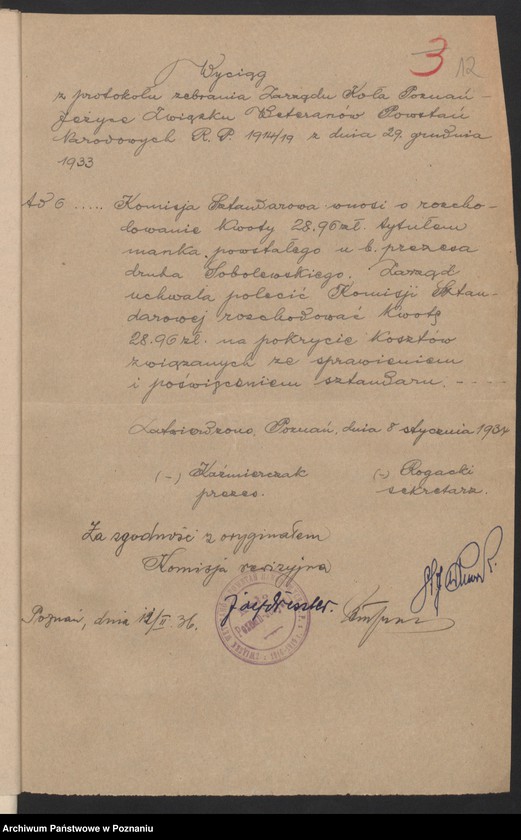 3 12
Wyciąg
z protokołu zebrania Zarządu Koła Poznań -
Jeżyce Związku Weteranów Powstań
Narodowych R. P. 1914/19 z dnia 29. grudnia
1933
Ad 6 ..... Komisja Sztandarowa wnosi o rozcho-
dowanie kwoty 28.96 zł. tytułem
manka, powstałego u b. prezesa
druha Sobolewskiego. Zarząd
uchwala polecić Komisji Sztan-
darowej rozchodować kwotę
28.96 zł. na pokrycie kosztów
związanych ze sprawieniem
i poświęceniem sztandaru. - - - -
Zatwierdzono, Poznań, dnia 8 stycznia 1934
(-) Kaźmierczak (-) Rogacki
prezes. sekretarz.
Za zgodność z oryginałem
Komisja rewizyjna
Poznań, dnia 12/II 36.
Archiwum Państwowe w Poznaniu